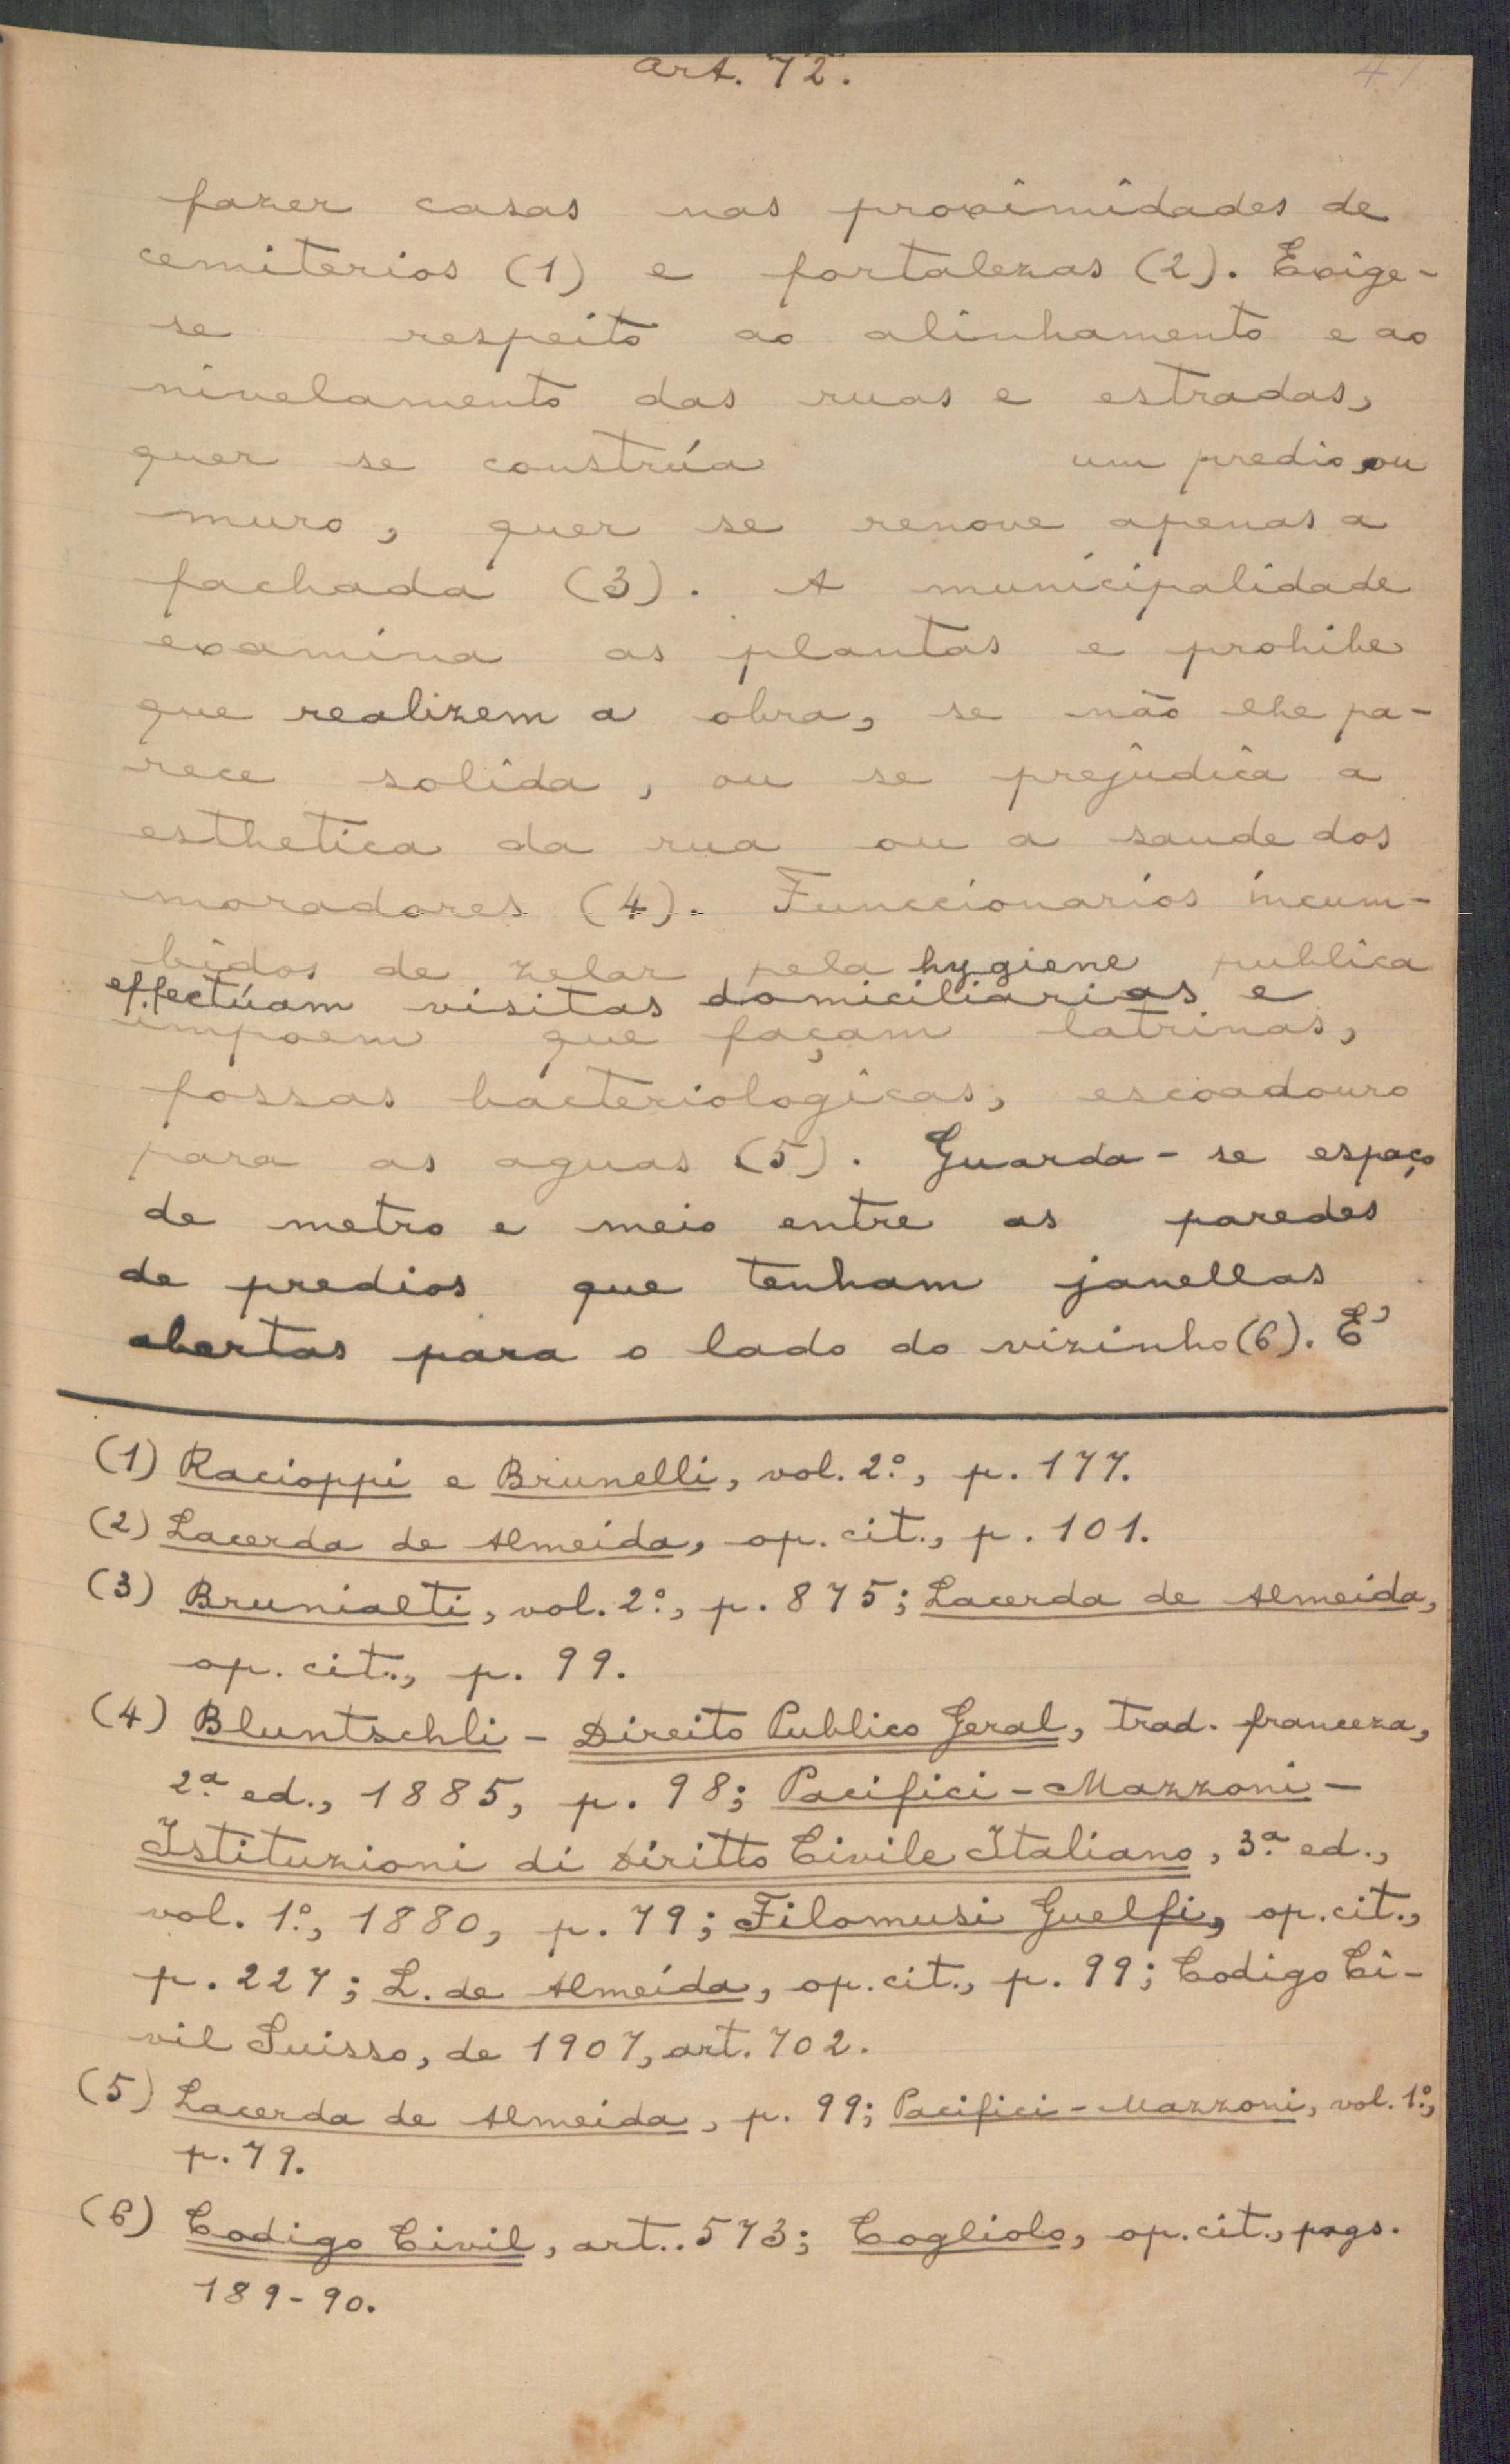 Art. 72.
47
fazer casas nas proximidades de
cemiterios (1) e fortalezas (2). Exige-
se respeito ao alinhamento e ao
nivelamento das ruas e estradas,
quer se construa um predio, ou
muro, quer se renove apenas a
fachada (3). A municipalidade
examina as plantas e prohibe
que realizem a obra, se não lhe pa-
rece solida, ou se prejudica a
esthetica da rua ou a saude dos
moradores (4). Funccionarios incum-
bidos de zelar pela hygiene publica
effectúam visitas domiciliarias e
impoem que façam latrinas,
fossas bacteriologicas, escoadouro
para as aguas (5). Guarda-se espaço
de metro e meio entre as paredes
de predios que tenham janellas
abertas para o lado do vizinho (6). E'
(1) Racioppi e Brunelli, vol. 2º, p. 177.
(2) Lacerda de Almeida, op. cit., p. 101.
(3) Brunialti, vol. 2º, p. 875; Lacerda de Almeida,
op. cit., p. 99.
(4) Bluntschli - Direito Publico Geral, trad. franceza,
2ª ed., 1885, p. 98; Pacifici-Mazzoni -
Istituzioni di Diritto Civile Italiano, 3ª ed.,
vol. 1º, 1880, p. 79; Filomusi Guelfi, op. cit.,
p. 227; L. de Almeida, op. cit., p. 99; Codigo Ci-
vil Suisso, de 1907, art. 702.
(5) Lacerda de Almeida, p. 99; Pacifici-Mazzoni, vol. 1º,
p. 79.
(6) Codigo Civil, art. 573; Cogliolo, op. cit., pags.
189-90.